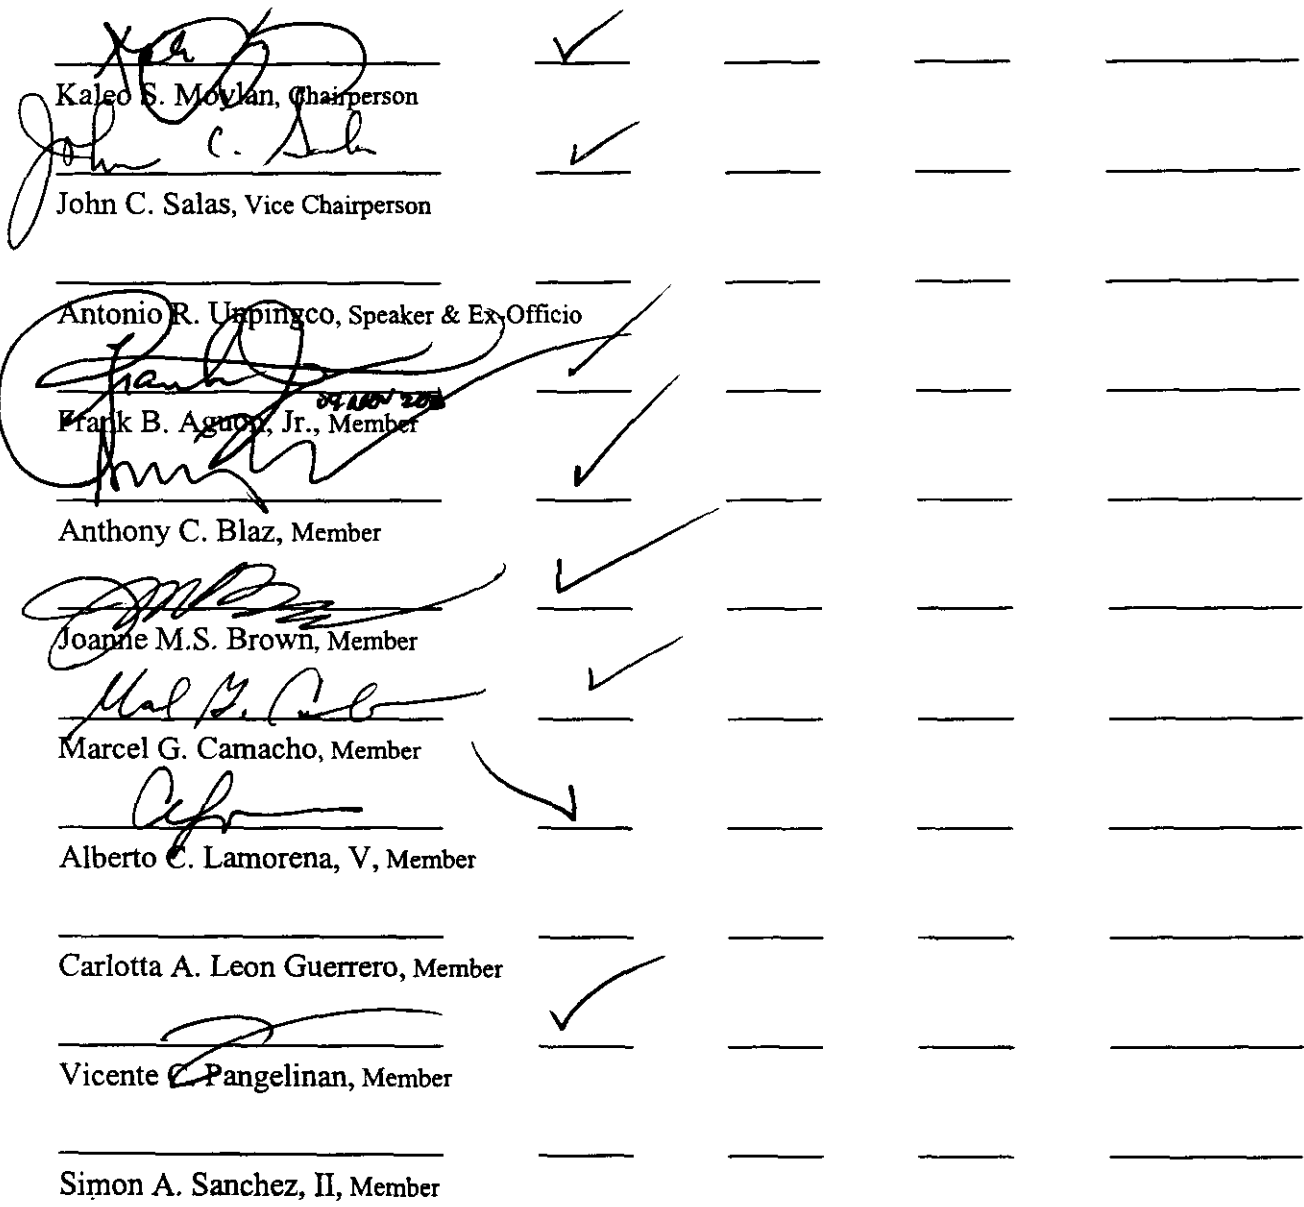 Kaleo S. Moylan, Chairperson
John C. Salas
John C. Salas, Vice Chairperson
Antonio R. Unpingco, Speaker & Ex-Officio
Frank B. Aguon, Jr., Member
Anthony C. Blaz, Member
Joanne M.S. Brown, Member
Marcel G. Camacho, Member
Alberto C. Lamorena, V, Member
Carlotta A. Leon Guerrero, Member
Vicente C. Pangelinan, Member
Simon A. Sanchez, II, Member